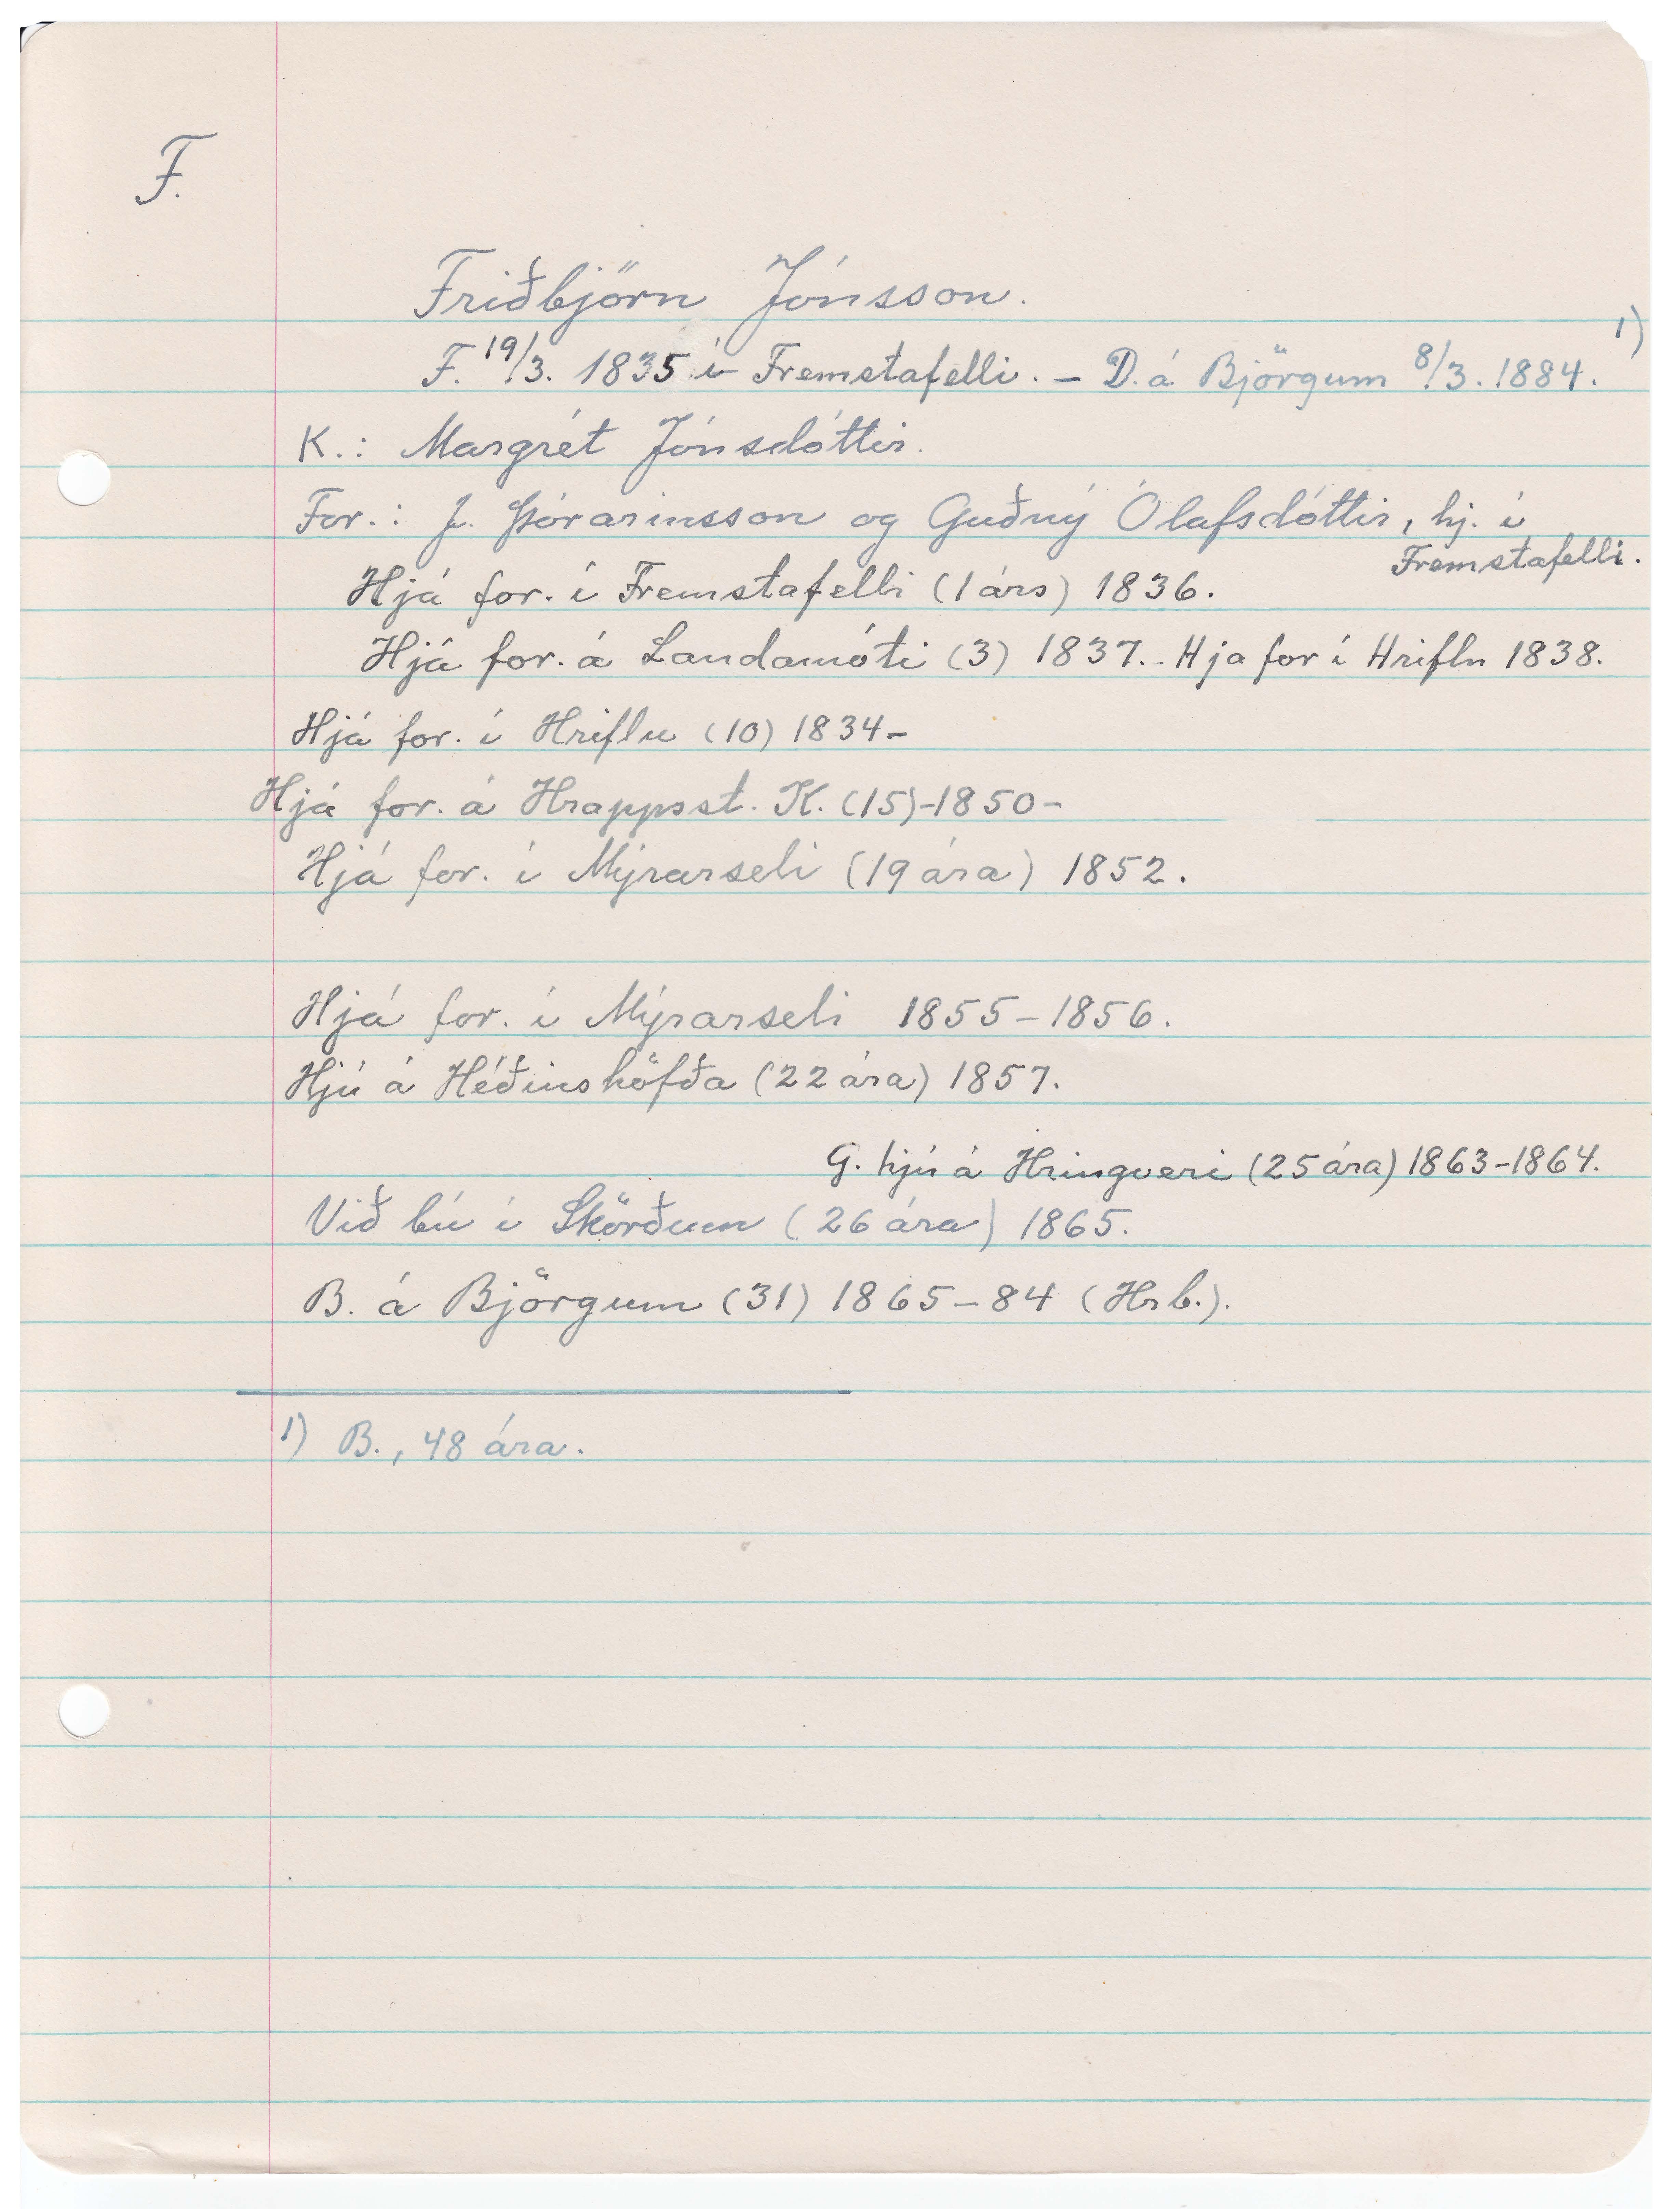 F.
Friðbjörn Jónsson.
F. 19/3. 1835 í Fremstafelli. – D. á Björgum 8/3. 1884. 1)
K.: Margrét Jónsdóttir.
For.: J. Þórarinsson og Guðný Ólafsdóttir, hj. í
Fremstafelli.
Hjá for. í Fremstafelli (1 árs) 1836.
Hjá for. á Landamóti (3) 1837. - Hja for í Hriflu 1838.
Hjá for. í Hriflu (10) 1834 –
Hjá for. á Hrappsst. K. (15) - 1850 –
Hjá for. í Mýrarseli (19 ára) 1852.
Hjá for. í Mýrarseli 1855 – 1856.
Hjú á Héðinshöfða (22 ára) 1857.
G. hjú á Hringveri (25 ára) 1863-1864.
Við bú í Skörðum (26 ára) 1865.
B. á Björgum (31) 1865 – 84 (Hrb.).
1) B., 48 ára.